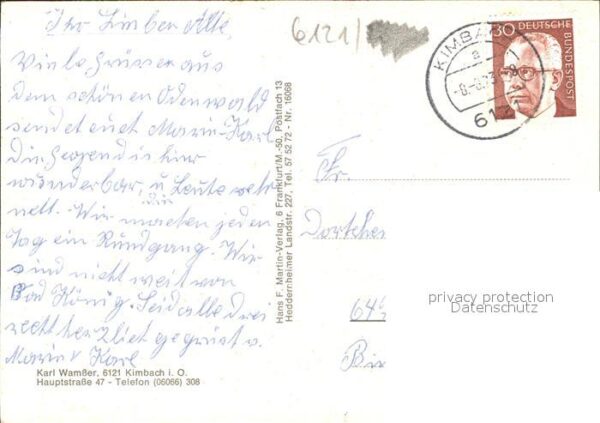 Ihr Lieben Alle,
Viele Grüsse aus
dem schönen Odenwald
sendet euch Marie u. Karl
Die Gegend ist hier
wunderbar, u. Leute sehr
nett. Wir machen jeden
Tag ein Rundgang. Wir
sind nicht weit von
Bad König. Seid alle drei
recht herzlich gegrüst v.
Marie u Karl
Karl Wamßer, 6121 Kimbach i. O.
Hauptstraße 47 - Telefon (06066) 308
Hans F. Martin-Verlag, 6 Frankfurt/M.-50, Postfach 13
Heddernheimer Landstr. 227, Tel. 57 52 72 - Nr. 16068
6121/
KIMBA
a
612
30 DEUTSCHE BUNDESPOST
Fr.
Dortchen
64
privacy protection
Datenschutz
Bi